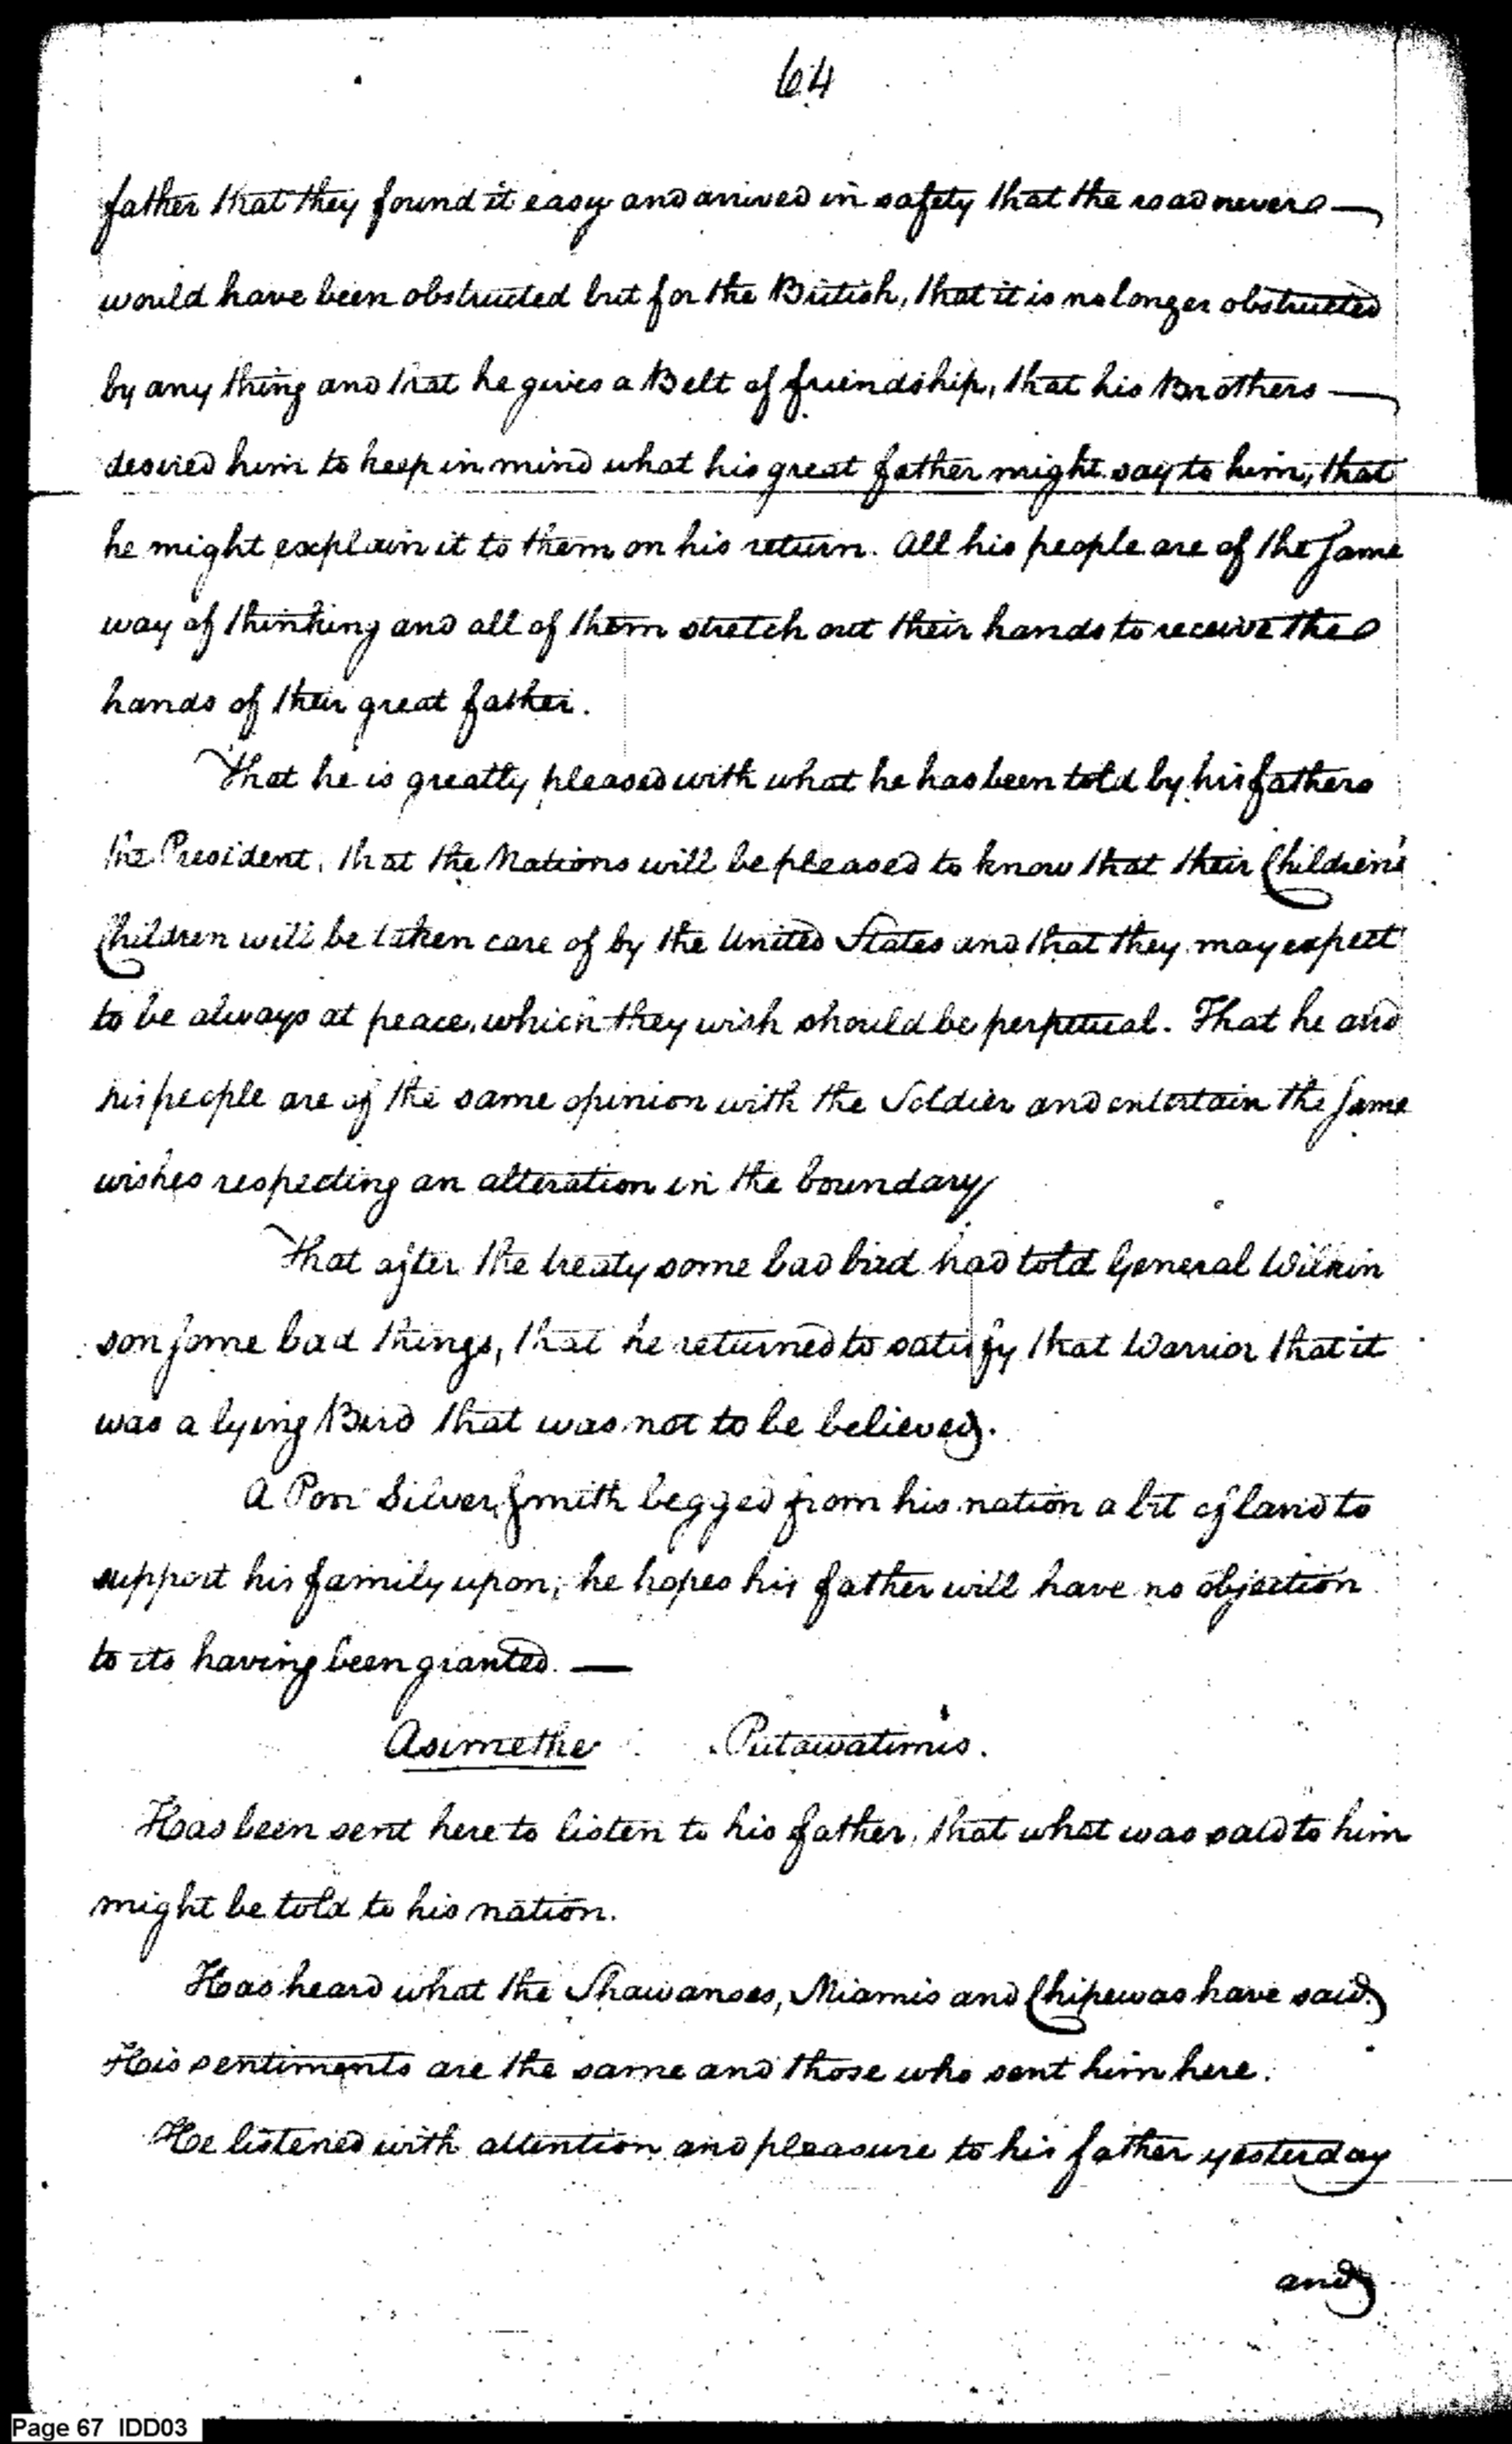 64
father that they found it easy and arrived in safety that the road never —
would have been obstructed but for the British, that it is no longer obstructed
by any thing and that he gives a Belt of friendship, that his Brothers —
desired him to keep in mind what his great father might say to him, that
he might explain it to them on his return. All his people are of the same
way of thinking and all of them stretch out their hands to receive the
hands of their great father.
That he is greatly pleased with what he has been told by his fathers
the President, that the Nations will be pleased to know that their Children's
Children will be taken care of by the United States and that they may expect
to be always at peace, which they wish should be perpetual. That he and
his people are of the same opinion with the Soldier and entertain the same
wishes respecting an alteration in the boundary
That after the treaty some bad bird had told General Wilkin
son some bad things, that he returned to satisfy that Warrior that it
was a lying Bird that was not to be believed.
A Poor Silver Smith begged from his nation a bit of land to
support his family upon; he hopes his father will have no objection
to its having been granted. —
Asimethe Putawatimis.
Has been sent here to listen to his father, that what was said to him
might be told to his nation.
Has heard what the Shawanoes, Miamis and Chipewas have said.
His sentiments are the same and those who sent him here.
He listened with attention and pleasure to his father yesterday
and
Page 67 IDD03